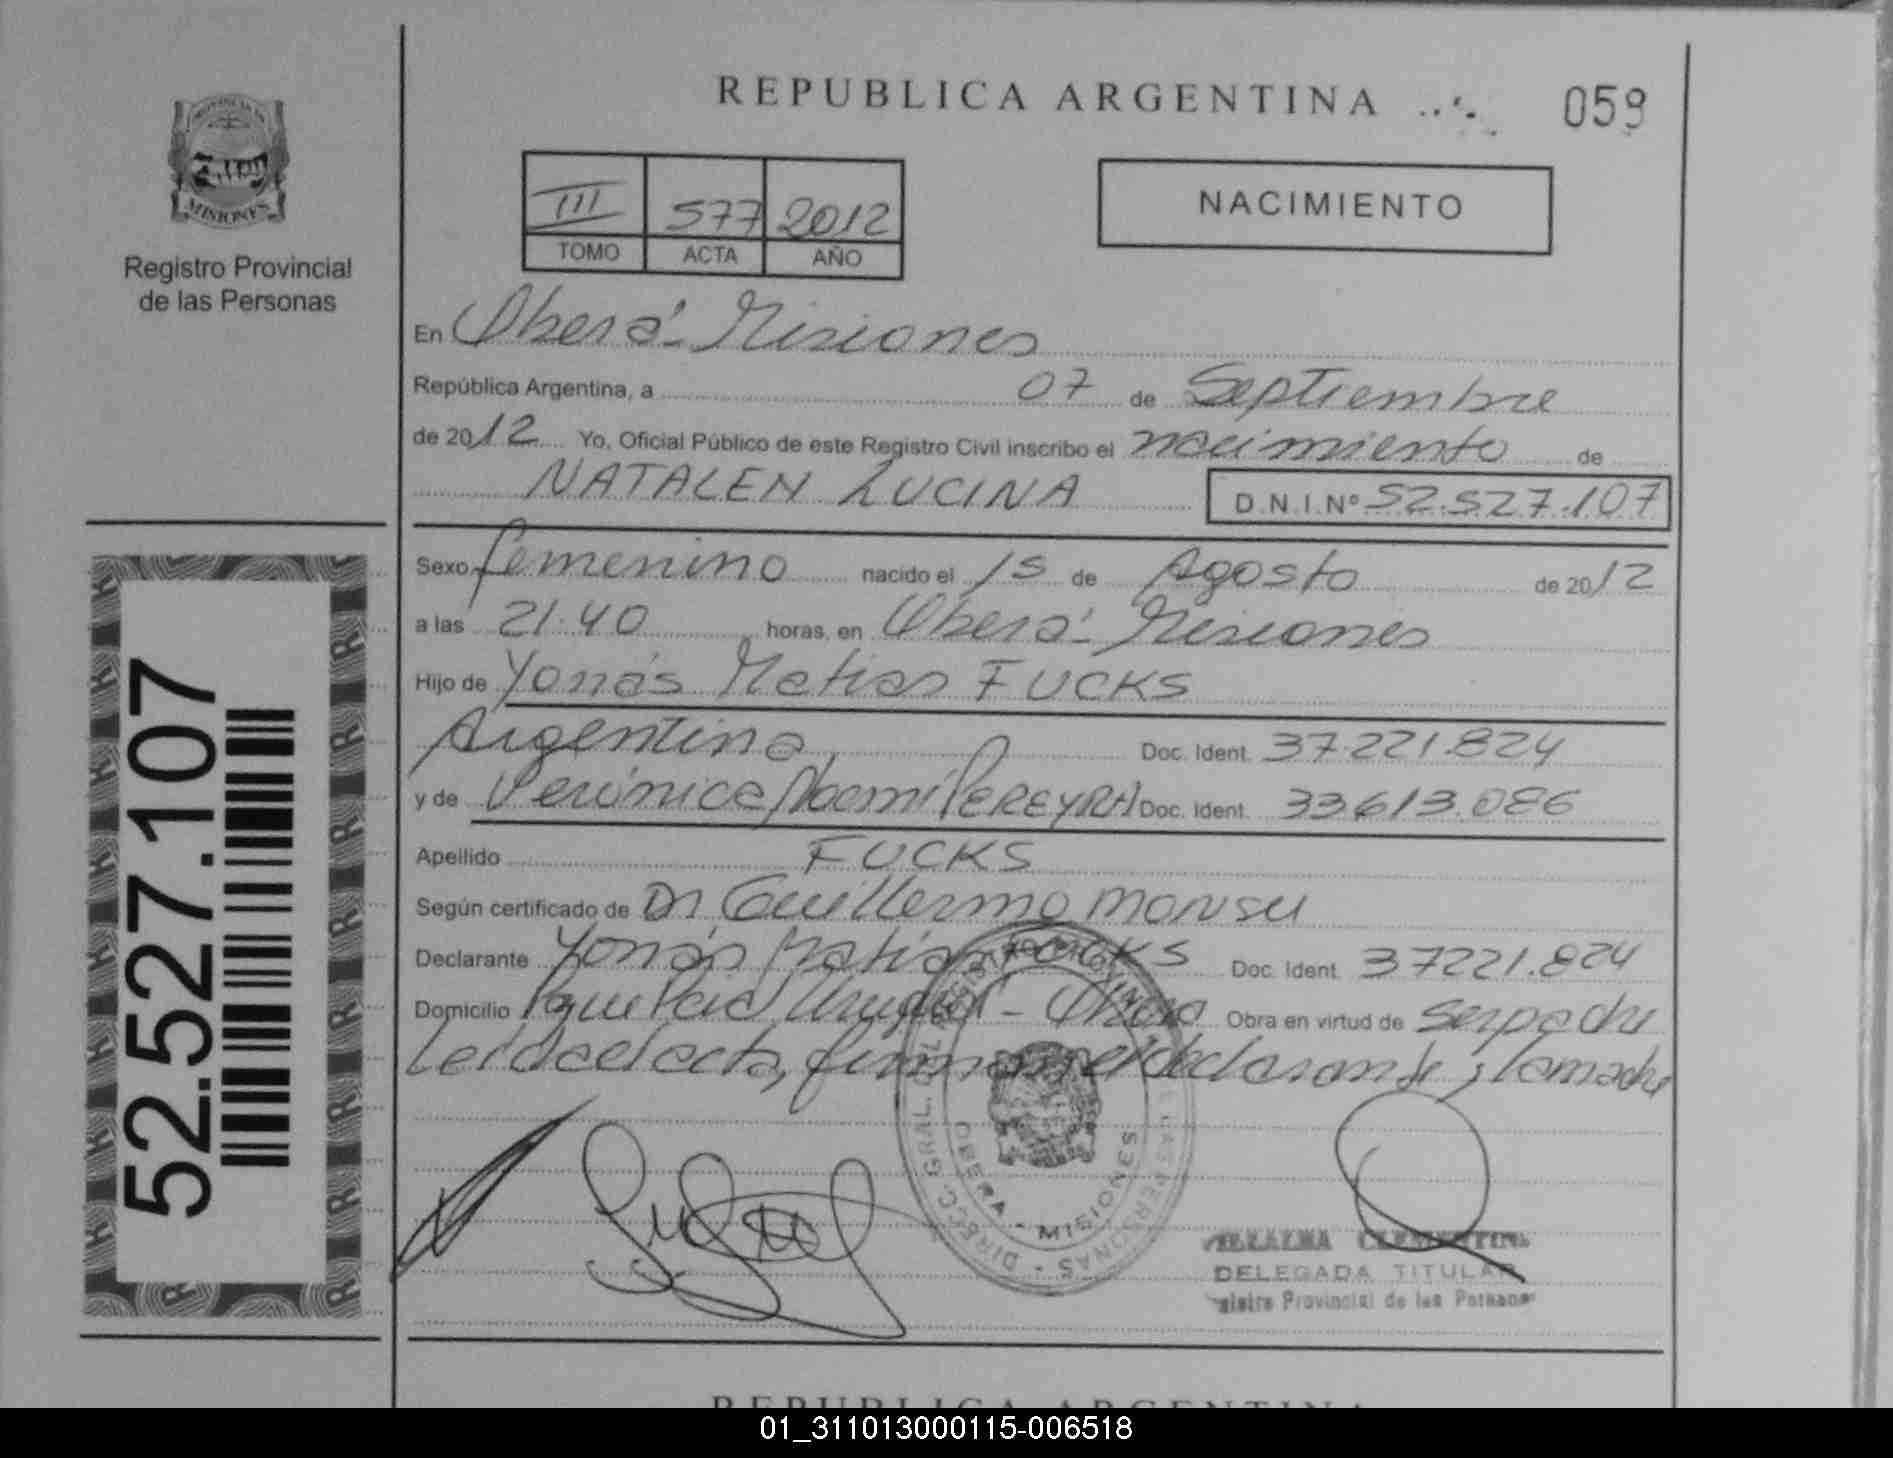 REPUBLICA ARGENTINA
059
PROVINCIA DE
MISIONES
Registro Provincial
de las Personas
III 577 2012
TOMO ACTA AÑO
NACIMIENTO
En Oberá - Misiones
República Argentina, a 07 de Septiembre
de 2012 Yo, Oficial Público de este Registro Civil inscribo el nacimiento de
NATALEN LUCINA D.N.I.Nº 52.527.107
Sexo femenino nacido el 15 de Agosto de 2012
a las 21.40 horas, en Oberá - Misiones
Hijo de Yonás Matias FUCKS
Argentino, Doc. Ident. 37.221.824
y de Verónica Noemi PEREYRA Doc. Ident. 33.613.086
Apellido FUCKS
Según certificado de Dr Guillermo MONSU
Declarante Yonás Matias FUCKS Doc. Ident. 37221.824
Domicilio Oberá Obra en virtud de ser padre
Leida el acta, firman el declarante y la madre
52.527.107
DIRECC. GRAL. DEL REGISTRO PROVINCIAL DE LAS PERSONAS
OBERA - MISIONES
CLEMENTINA
DELEGADA TITULAR
Provincial de las Personas
REPUBLICA ARGENTINA
01_311013000115-006518